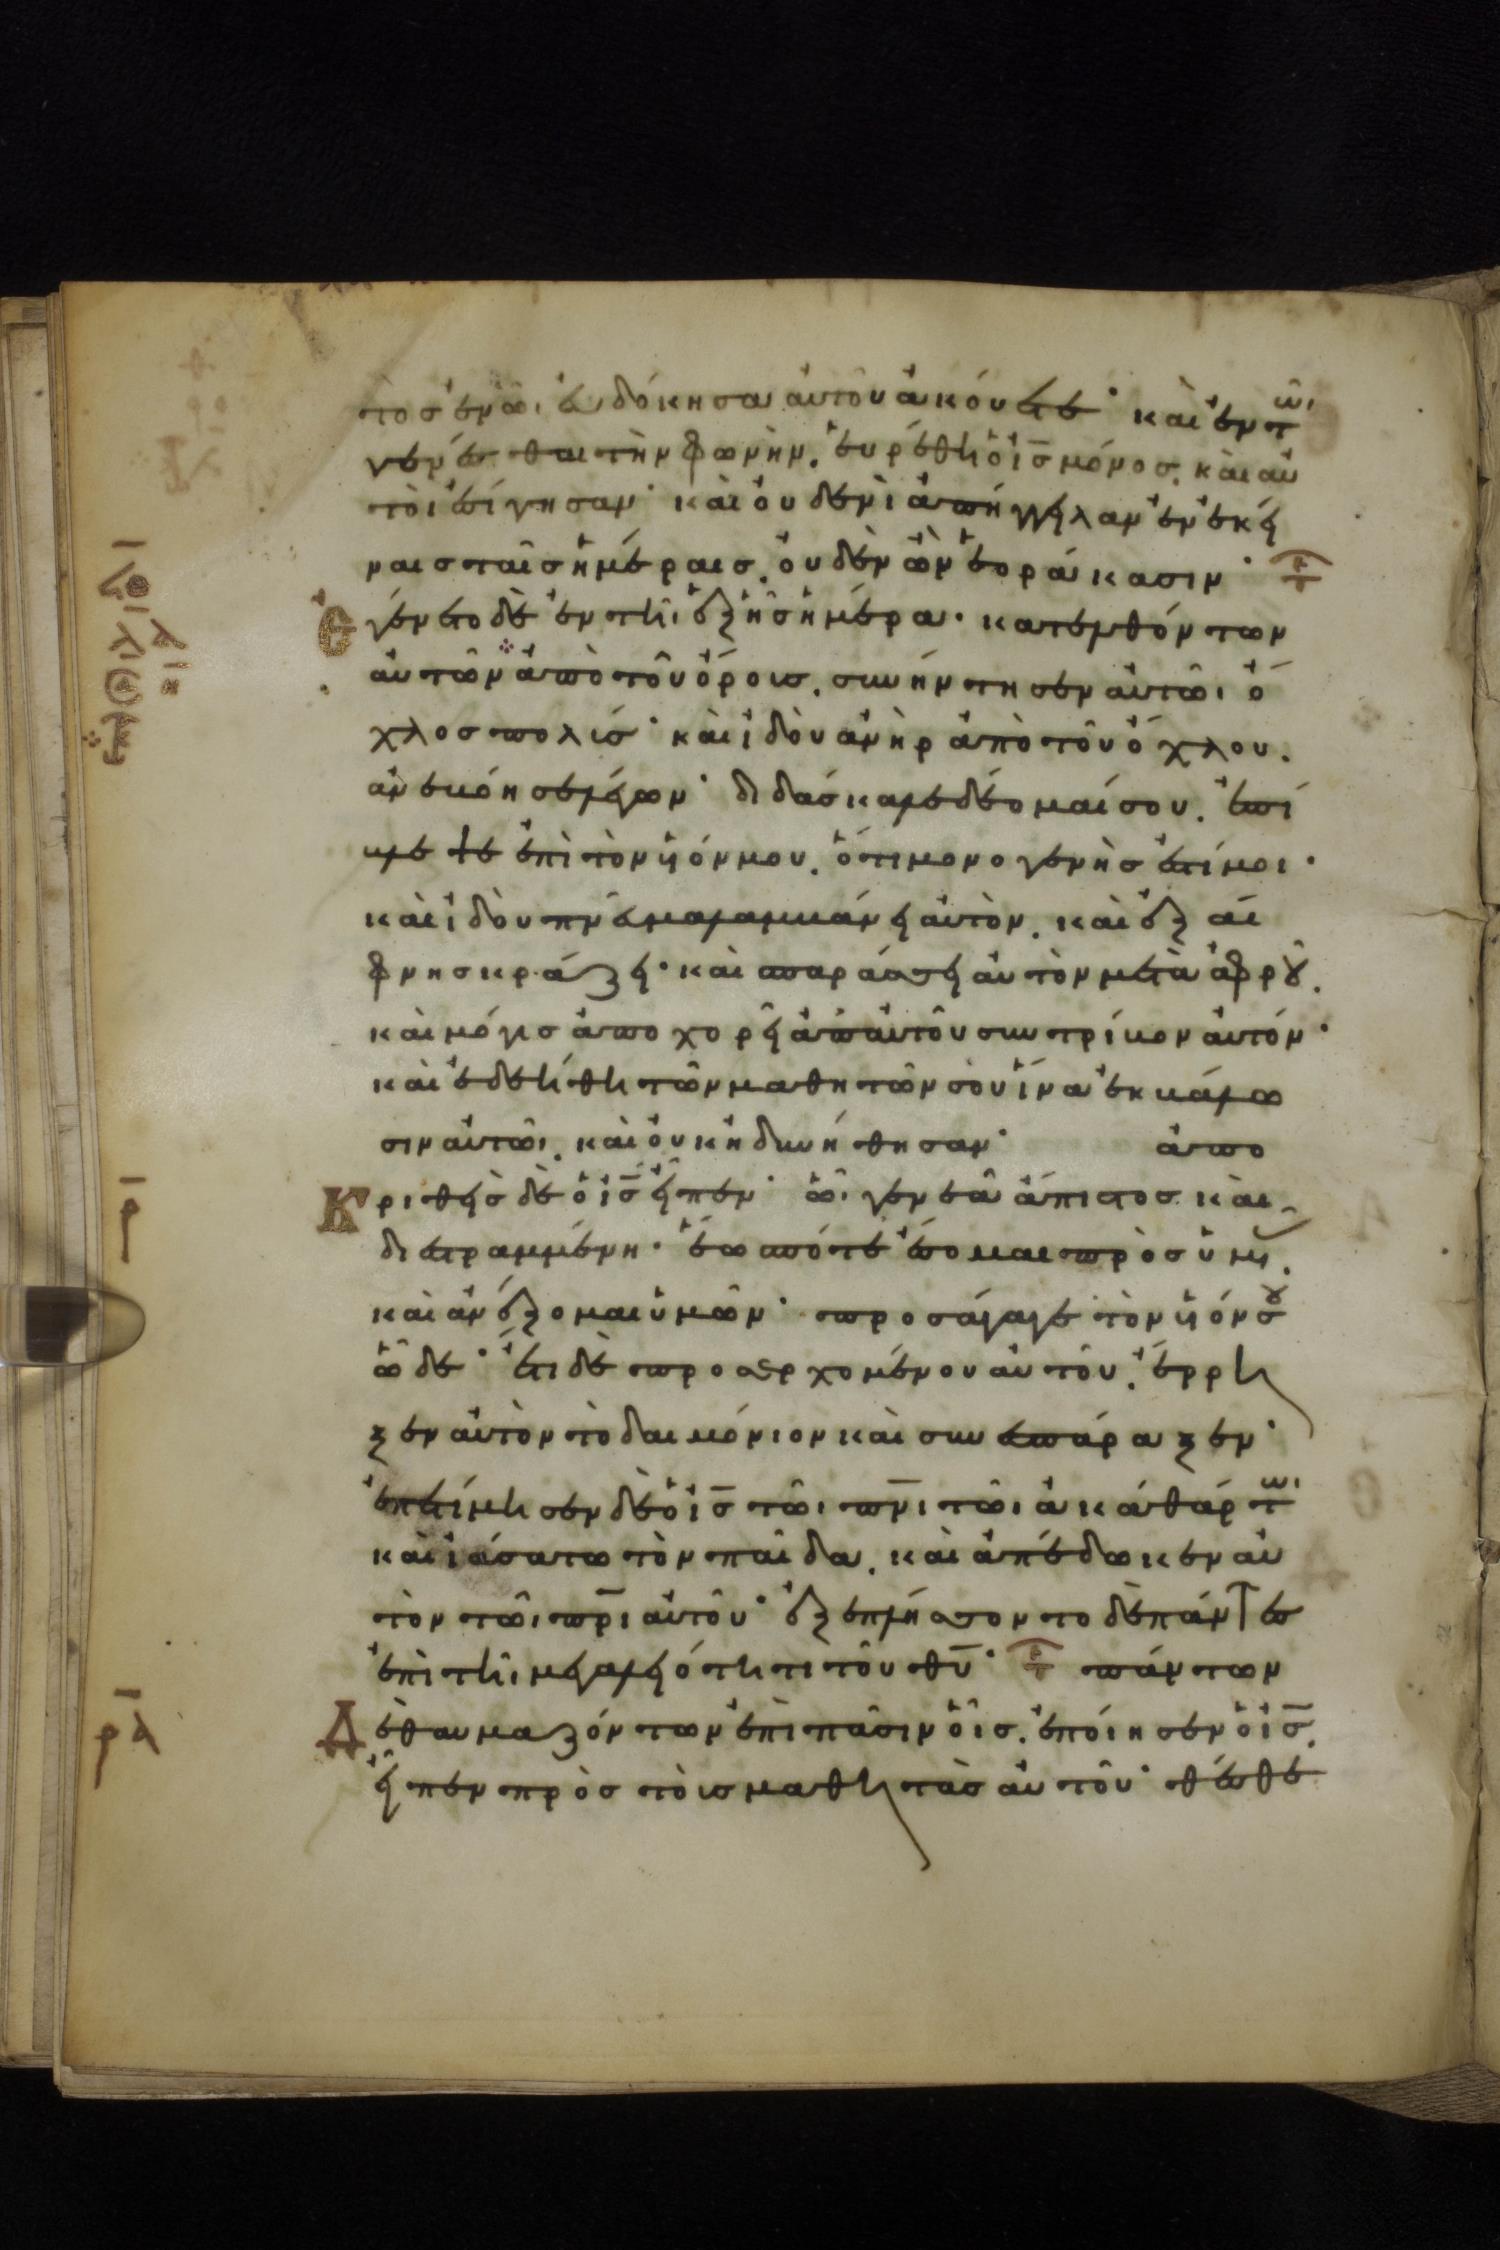 τος ἐν ὧι εὐδόκησα αὐτοῦ ἀκούετε· καὶ ἐν τῶι
γενέσθαι τὴν φωνὴν. εὑρέθη ὁ ἰς μόνος. καὶ αὐ
τοὶ ἐσίγησαν· καὶ οὐδενὶ ἀπήγγειλαν ἐν ἐκεί
ναις ταῖς ἡμέραις. οὐδὲν ὧν ἑοράκασιν·
Ἐγένετο δὲ ἐν τῆι ἑξῆς ἡμέρα· κατελθόντων
αὐτῶν ἀπὸ τοῦ ὄρους. συνήντησεν αὐτῶι ὄ
χλος πολύς· καὶ ἰδοὺ ἀνὴρ ἀπὸ τοῦ ὄχλου.
ἀνεβόησε λέγων· διδάσκαλε δέομαί σου. ἐπί
βλεψε ἐπὶ τὸν υἱόν μου. ὅτι μονογενὴς ἐστί μοι·
καὶ ἰδοὺ πνα λαμβάνει αὐτὸν. καὶ ἐξαί
φνης κράζει· καὶ σπαράσσει αὐτὸν μετὰ ἀφροῦ.
καὶ μόγις ἀποχορεῖ ἀπ αὐτοῦ συντρίβον αὐτόν·
καὶ ἐδεήθη τῶν μαθητῶν σου ἵνα ἐκβάλω
σιν αὐτῶι. καὶ οὐκ ἠδυνήθησαν· ἀπο
Κριθεὶς δὲ ὁ ἰς εἶπεν· ὦι γενεὰ ἄπιστος καὶ
διεστραμμένη· ἕως πότε ἔσομαι πρὸς ὑμᾶς.
καὶ ἀνέξομαι ὑμῶν· προσάγαγε τὸν υἱόν σου
ὧδε· ἔτι δὲ προσερχομένου αὐτοῦ. ἔρρη
ξεν αὐτὸν τὸ δαιμόνιον καὶ συνεσπάραξεν·
ἐπετίμησεν δὲ ὁ ἰς τῶι πνι τῶι ἀκάθάρτωι
καὶ ἰάσατω τὸν παῖδα. καὶ ἀπέδωκεν αὐ
τὸν τῶι πρι αὐτοῦ· ἐξεπλήσσοντο δὲ πάντες
ἐπὶ τῆι μεγαλειότητι τοῦ θυ· πάντων
Δ ὲ θαυμαζόντων ἐπὶ πᾶσιν οἷς. ἐποίησεν ὁ ἰς.
εἶπεν πρὸς τοὺς μαθητὰς αὐτοῦ· θέσθε